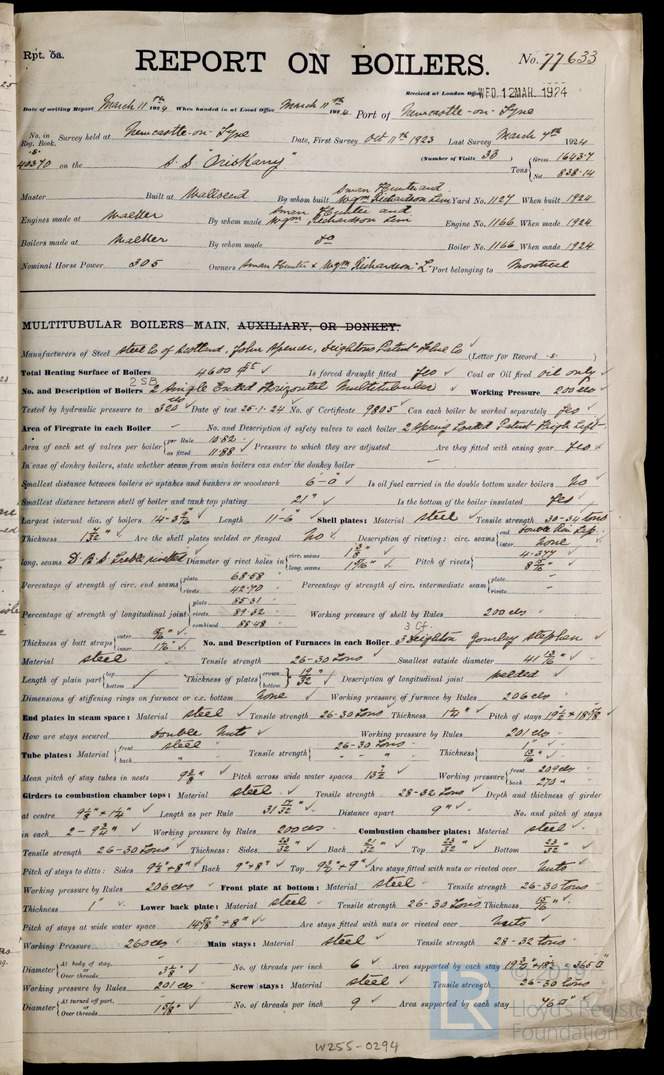 Rpt. 5a.
REPORT ON BOILERS.
No. 77633
Received at London Office WED. 12 MAR. 1924
Date of writing Report March 11th 1924 When handed in at Local Office March 11th 1924 Port of Newcastle-on-Tyne
No. in Reg. Book. Survey held at Newcastle-on-Tyne Date, First Survey Oct 11th 1923 Last Survey March 7th 1924
40370 on the S.S. "Oriskany" (Number of Visits 33) Tons { Gross 1643.7 Net 838.14
Master Built at Wallsend By whom built Swan Hunter and Wgm Richardson Ltd Yard No. 1127 When built 1924
Engines made at Walker By whom made Swan Hunter and Wgm Richardson Ltd Engine No. 1166 When made 1924
Boilers made at Walker By whom made do Boiler No. 1166 When made 1924
Nominal Horse Power 305 Owners Swan Hunter & Wgm Richardson Ld Port belonging to Montreal
MULTITUBULAR BOILERS MAIN, AUXILIARY, OR DONKEY.
Manufacturers of Steel Steel Co of Scotland, John Spencer, Deightons Patent Flue Co (Letter for Record S. )
Total Heating Surface of Boilers 4600 Is forced draught fitted Yes Coal or Oil fired oil only
2 SB
No. and Description of Boilers 2 Single Ended Horizontal Multitubular Working Pressure 200 lbs
Tested by hydraulic pressure to 350 Date of test 25-1-24 No. of Certificate 9805 Can each boiler be worked separately Yes
Area of Firegrate in each Boiler - No. and Description of safety valves to each boiler 2 spring loaded Patent High Lift
Area of each set of valves per boiler { per Rule 10.82 as fitted 11.88 Pressure to which they are adjusted Are they fitted with easing gear Yes
In case of donkey boilers, state whether steam from main boilers can enter the donkey boiler -
Smallest distance between boilers or uptakes and bunkers or woodwork 6-0" Is oil fuel carried in the double bottom under boilers No
Smallest distance between shell of boiler and tank top plating 21" Is the bottom of the boiler insulated Yes
Largest internal dia. of boilers Length 11-6" Shell plates: Material steel Tensile strength 30-34 tons
Thickness Are the shell plates welded or flanged No Description of riveting: circ. seams { end double Riv Lap inter. none
long. seams D.B.S Treble riveted Diameter of rivet holes in { circ. seams long. seams Pitch of rivets { 4.377
Percentage of strength of circ. end seams { plate 68.58 rivets 42.70 Percentage of strength of circ. intermediate seam { plate - rivets -
Percentage of strength of longitudinal joint { plate 85.31 rivets 89.32 combined 88.48 Working pressure of shell by Rules 200 lbs
3 Cf.
Thickness of butt straps { outer inner No. and Description of Furnaces in each Boiler 3 Deighton Gourlay Stephen
Material steel Tensile strength 26-30 Tons Smallest outside diameter 41 13/16"
Length of plain part { top bottom Thickness of plates { crown bottom 19/32" Description of longitudinal joint welded
Dimensions of stiffening rings on furnace or c.c. bottom None Working pressure of furnace by Rules 206 lbs
End plates in steam space: Material steel Tensile strength 26-30 Tons Thickness 1 1/4" Pitch of stays
How are stays secured double nuts Working pressure by Rules 201 lbs
Tube plates: Material { front steel back " Tensile strength { 26-30 Tons Thickness {
Mean pitch of stay tubes in nests Pitch across wide water spaces 13 1/2" Working pressure { front 209 lbs back 270 "
Girders to combustion chamber tops: Material steel Tensile strength 28-32 Tons Depth and thickness of girder
at centre Length as per Rule 31 Distance apart 9" No. and pitch of stays
in each 2 - 9 3/4" Working pressure by Rules 200 lbs Combustion chamber plates: Material steel
Tensile strength 26-30 Tons Thickness: Sides 23/32" Back 21/32" Top 23/32" Bottom 23/32"
Pitch of stays to ditto: Sides Back 9" x 8" Top 9 3/4" x 9" Are stays fitted with nuts or riveted over Nuts
Working pressure by Rules 206 lbs Front plate at bottom: Material steel Tensile strength 26-30 tons
Thickness 1" Lower back plate: Material steel Tensile strength 26-30 Tons Thickness 15/16"
Pitch of stays at wide water space 14 5/8" x 8" Are stays fitted with nuts or riveted over Nuts
Working Pressure 260 lbs Main stays: Material steel Tensile strength 28-32 tons
Diameter { At body of stay, or Over threads. 3 1/8" No. of threads per inch 6 Area supported by each stay 365 □"
Working pressure by Rules 201 lbs Screw stays: Material steel Tensile strength 26-30 tons
Diameter { At turned off part, or Over threads. 1 5/8" No. of threads per inch 9 Area supported by each stay 76 □"
© 2019
LR
Lloyd's Register
Foundation
W255-0294